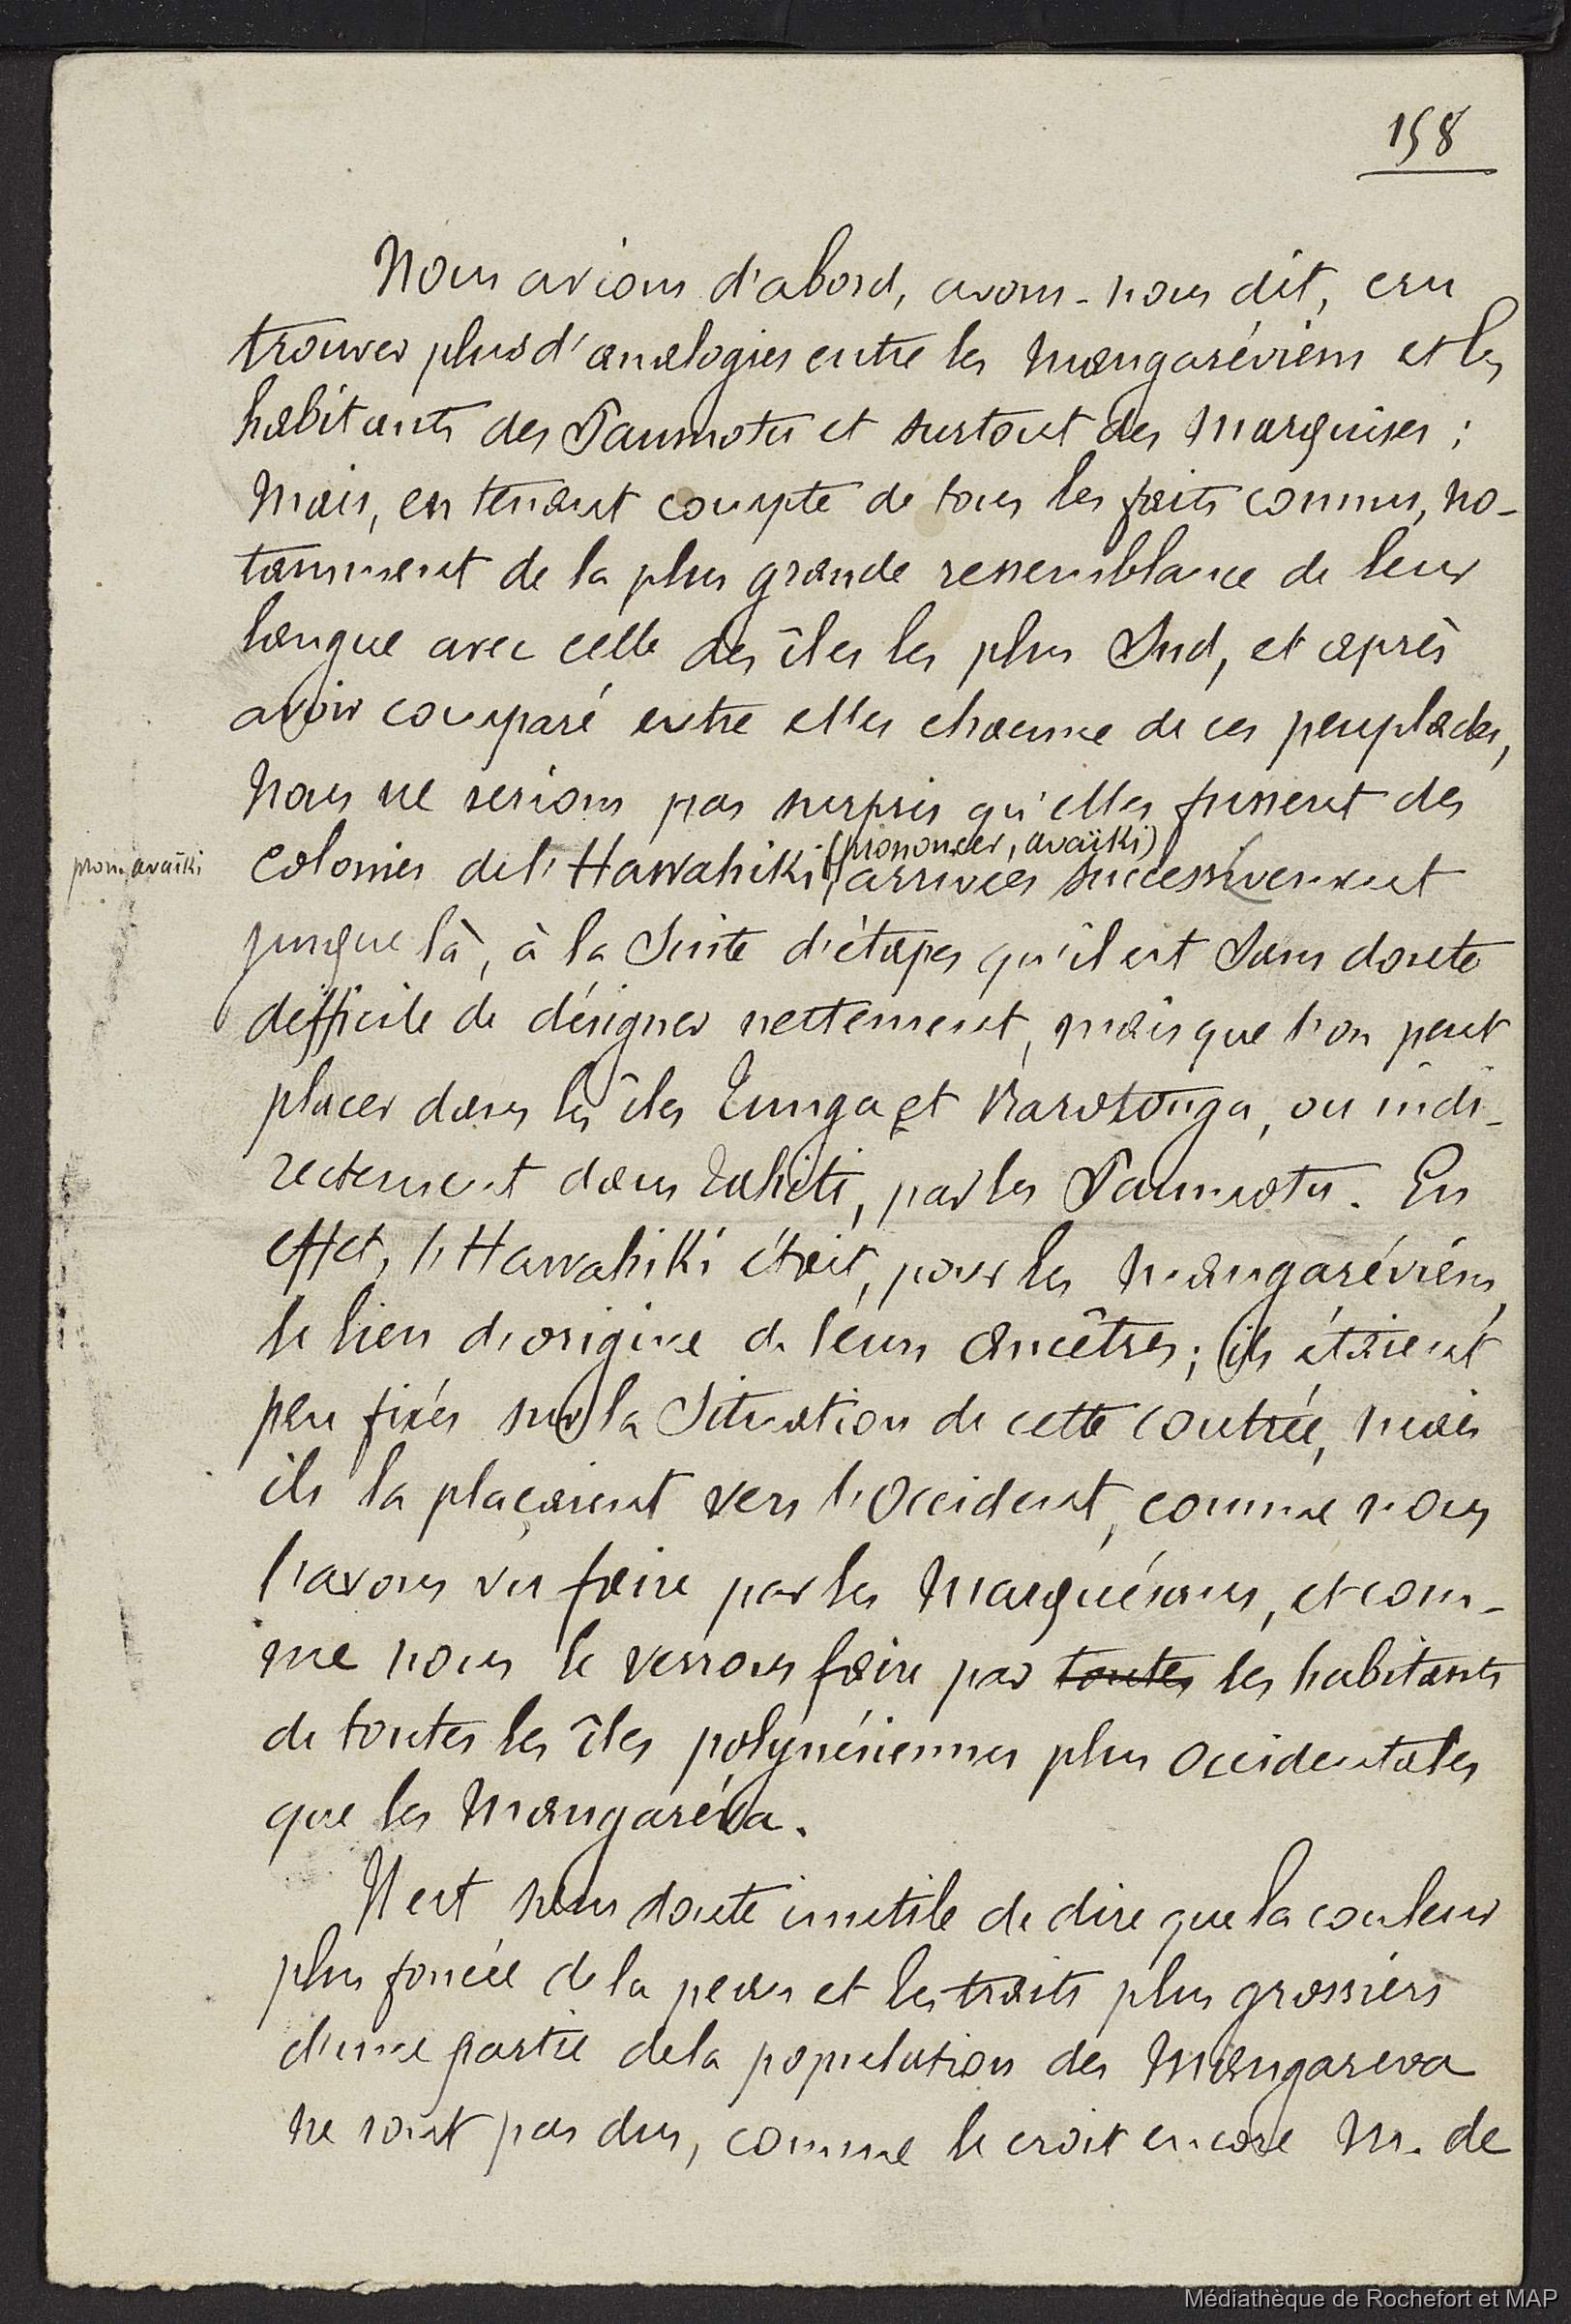 158
Nous avions d'abord, avons-nous dit, cru
trouver plus d'analogies entre les Mangaréviens et les
habitants des Paumotu et surtout des Marquises ;
Mais, en tenant compte de tous les faits connus, no-
tamment de la plus grande ressemblance de leur
langue avec celle des îles les plus Sud, et après
avoir comparé entre elles chacune de ces peuplades,
Nous ne serions pas surpris qu'elles fussent des
(prononcer, avaïki)
pron. avaïki
Colonies de l'Hawahiki, arrivées successivement
jusque là, à la Suite d'étapes qu'il est Sans doute
difficile de désigner nettement, mais que l'on peut
placer dans les îles Tunga et Rarotonga, ou indi-
rectement dans Tahiti, par les Paumotu. En
effet, l'Hawahiki était, pour les Mangaréviens,
le lieu d'origine de leurs ancêtres ; ils étaient
peu fixés sur la Situation de cette contrée, mais
ils la plaçaient vers l'Occident, comme nous
l'avons vu faire par les Marquésans, et com-
me nous le verrons faire par toutes les habitants
de toutes les îles polynésiennes plus occidentales
que les Mangaréva.
Il est sans doute inutile de dire que la couleur
plus foncée de la peau et les traits plus grossiers
d'une partie de la population des Mangareva
ne sont pas dus, comme le croit encore M. de
Médiathèque de Rochefort et MAP